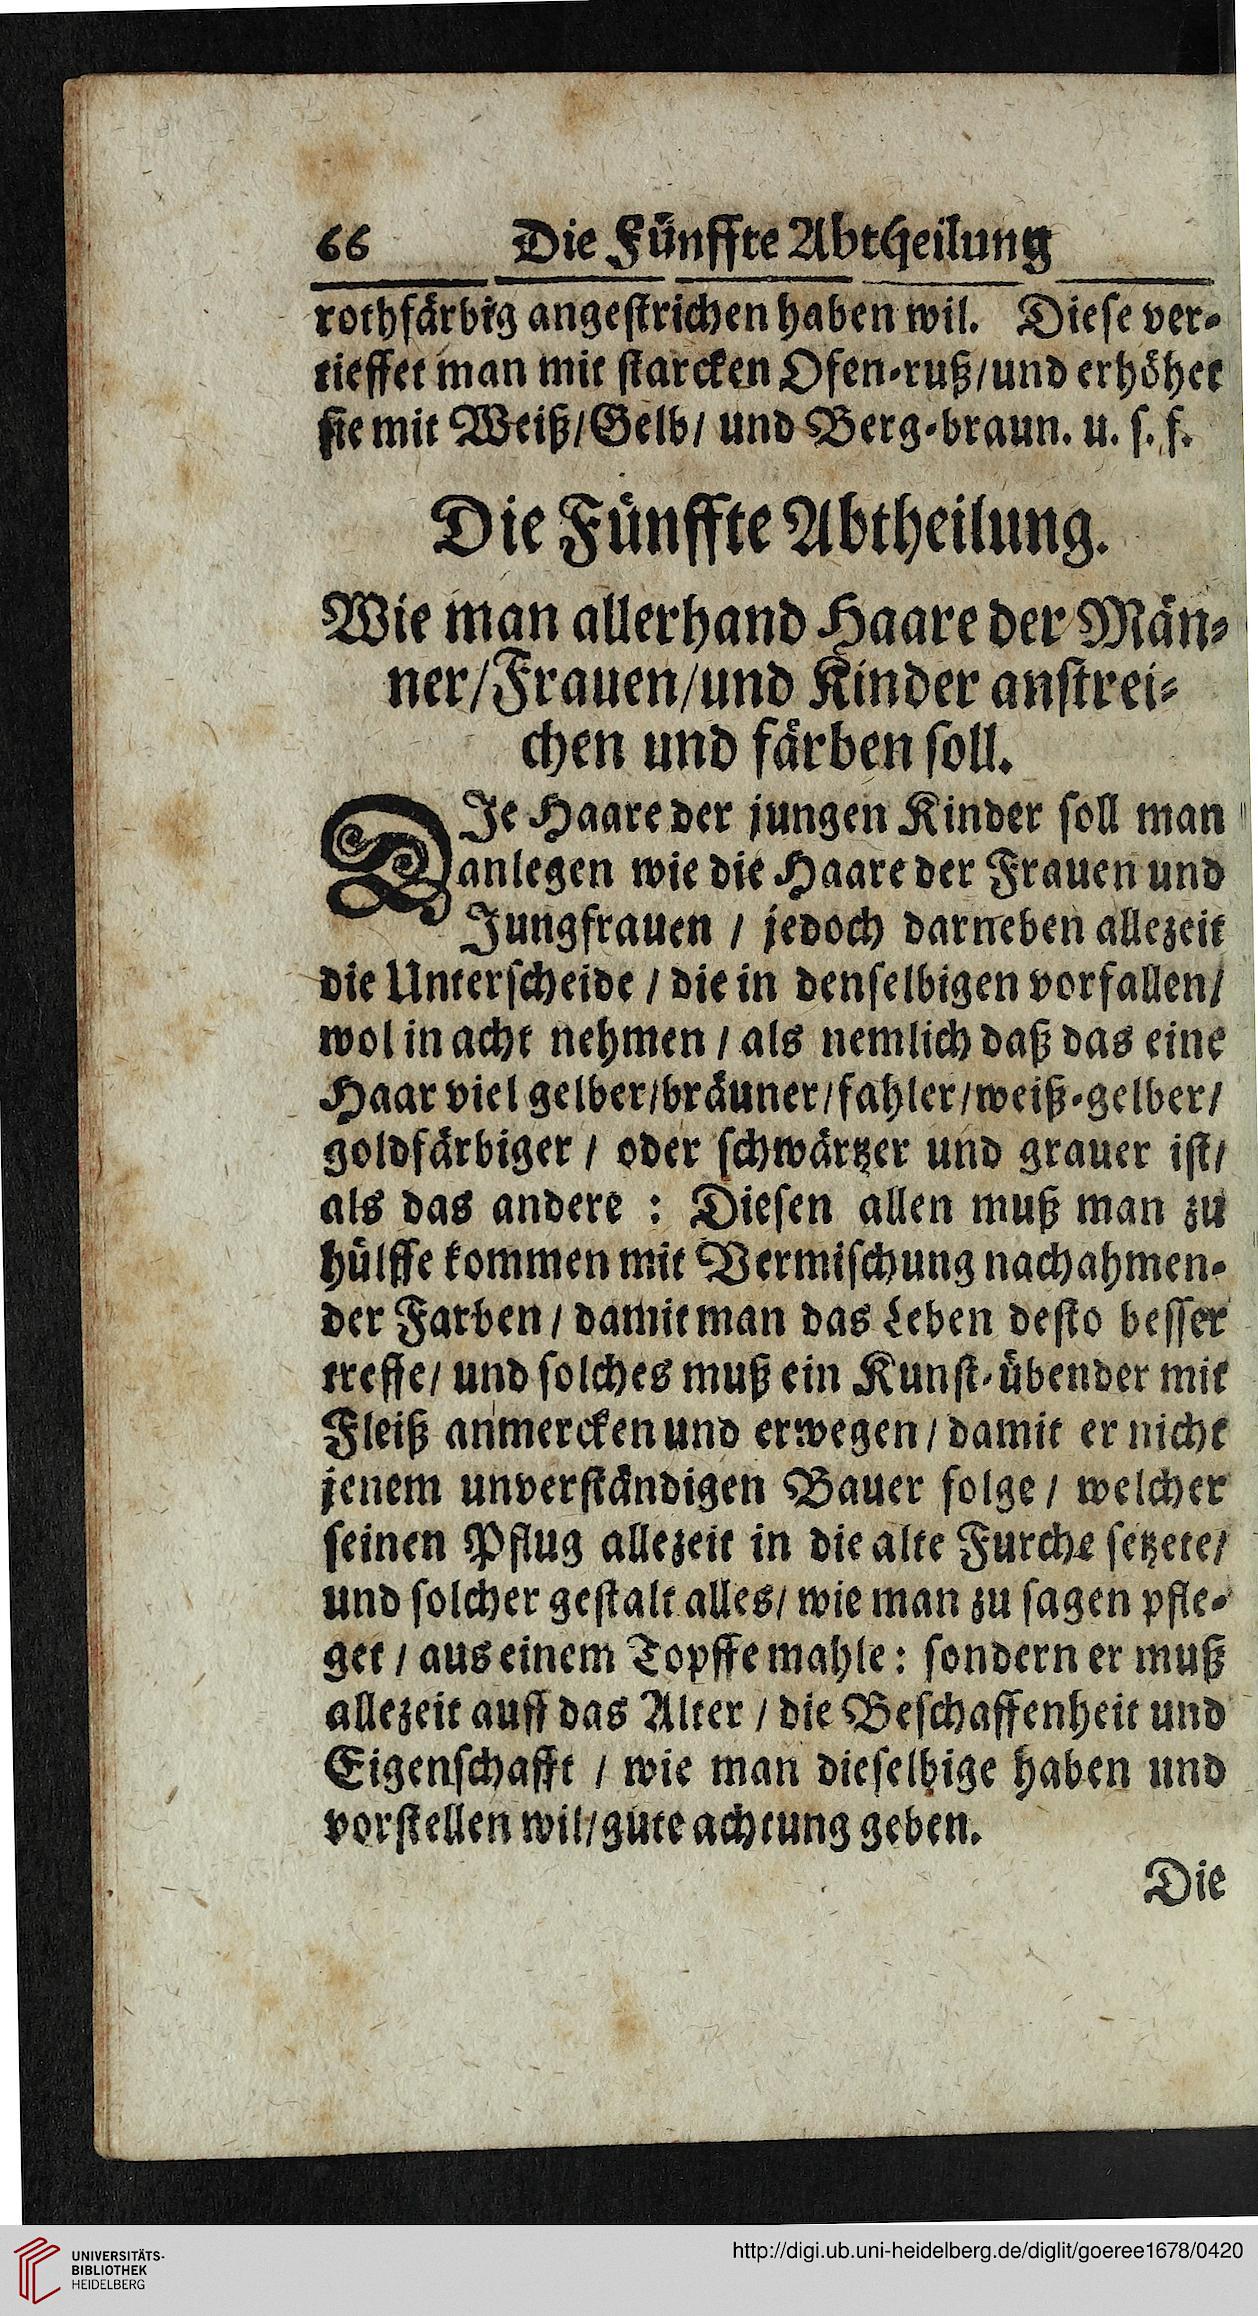 66 Die Fünffte Abtheilung
rothfärbig angestrichen haben wil. Diese ver-
tieffet man mit starcken Ofen-ruß/und erhöhet
sie mit Weiß/Gelb/ und Berg-braun. u. s. f.
Die Fünffte Abtheilung.
Wie man allerhand Haare der Män-
ner/Frauen/und Kinder anstrei-
chen und färben soll.
DIe Haare der jungen Kinder soll man
anlegen wie die Haare der Frauen und
Jungfrauen / jedoch darneben allezeit
die Unterscheide / die in denselbigen vorfallen/
wol in acht nehmen / als nemlich daß das eine
Haar viel gelber/bräuner/fahler/weiß-gelber/
goldfärbiger / oder schwärtzer und grauer ist/
als das andere : Diesen allen muß man zu
hülffe kommen mit Vermischung nachahmen-
der Farben / damit man das Leben desto besser
treffe/ und solches muß ein Kunst-übender mit
Fleiß anmercken und erwegen / damit er nicht
jenem unverständigen Bauer folge / welcher
seinen Pflug allezeit in die alte Furche setzete/
und solcher gestalt alles/ wie man zu sagen pfle-
get / aus einem Topffe mahle : sondern er muß
allezeit auff das Alter / die Beschaffenheit und
Eigenschafft / wie man dieselbige haben und
vorstellen wil/gute achtung geben.
Die
UNIVERSITÄTS-
BIBLIOTHEK
HEIDELBERG
http://digi.ub.uni-heidelberg.de/diglit/goeree1678/0420